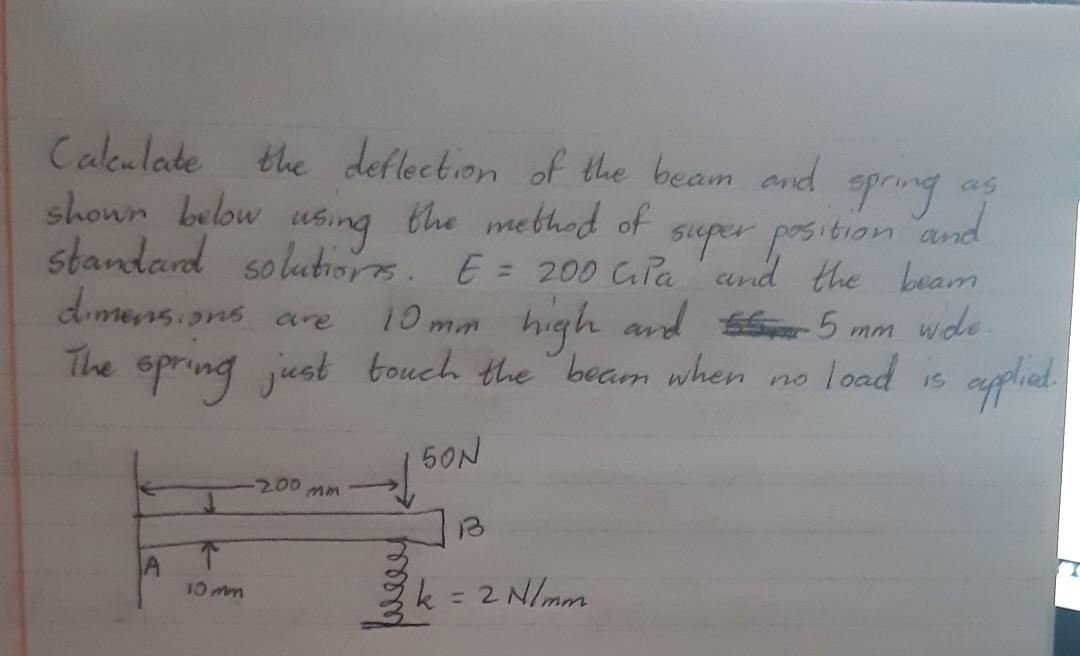 Calculate the deflection of the beam and spring as
shown below using the method of super position and
standard solutions. E = 200 GPa and the beam
dimensions are 10 mm high and 5 mm wide.
The spring just touch the beam when no load is applied.
50N
200 mm
B
A
10 mm
k = 2 N/mm